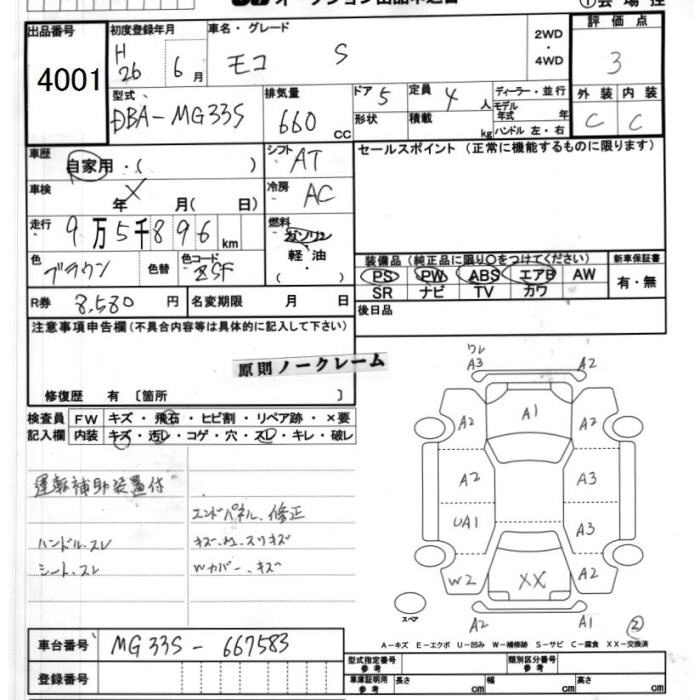 オークション出品申込書
①会場控
出品番号
4001
初度登録年月
H 26 6月
車名・グレード
モコ S
2WD
・
4WD
評価点
3
型式
DBA-MG33S
排気量
660 cc
ドア 5
形状
定員 4 人
積載 kg
ディーラー・並行
モデル年式 年
ハンドル 左・右
外装 内装
C C
車歴
自家用・( )
シフト AT
セールスポイント (正常に機能するものに限ります)
車検
X
年 月( 日)
冷房 AC
走行
9万5千896 km
燃料
ガソリン
軽・油
( ・ )
色
ブラウン
色替
色コード
ZSF
装備品(純正品に限り〇をつけてください)
新車保証書
PS PW ABS エアB AW
有・無
SR ナビ TV カワ
R券 8,580 円
名変期限 月 日
後日品
注意事項申告欄(不具合内容等は具体的に記入して下さい)
原則ノークレーム
修復歴 有 〔箇所 〕
検査員 FW キズ・飛石・ヒビ割・リペア跡・×要
記入欄 内装 キズ・汚レ・コゲ・穴・スレ・キレ・破レ
運転補助装置付
エンドパネル、修正
ハンドル、スレ
キズ、凹、スリキズ
シート、スレ
Wカバー、キズ
ワレ
A3 A2
A2 A1 A2
A2 A3
UA1 A3
W2 XX A2
スペア
A2 A1
②
A-キズ E-エクボ U-凹み W-補修跡 S-サビ C-腐食 XX-交換済
車台番号 MG33S - 667583
登録番号
型式指定番号 参考
類別区分番号 参考
車庫証明用 参考 長さ cm 幅 cm 高さ cm